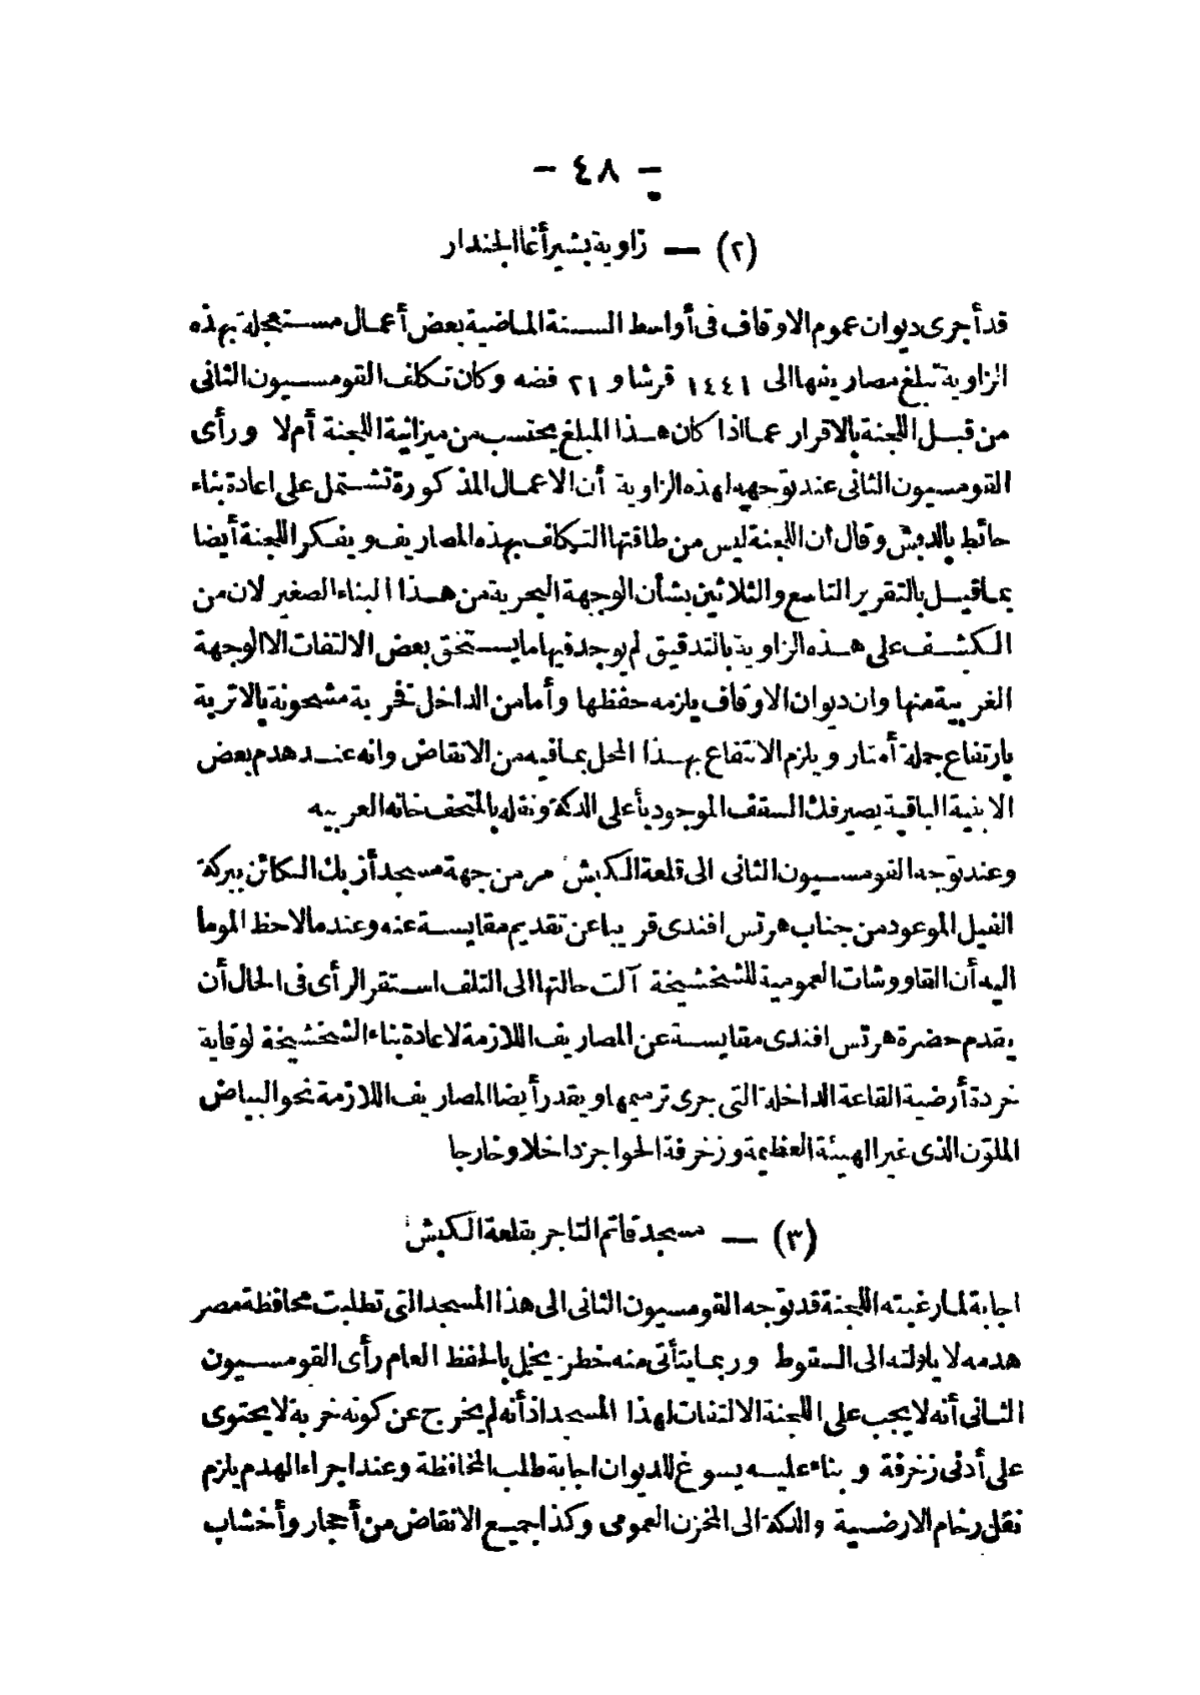 - ٤٨ -
(٢) — زاوية بشير أغا الجندار
قد أجرى ديوان عموم الاوقاف فى أواسط السنة الماضية بعض أعمال مستعجلة بهذه
الزاوية تبلغ مصاريفها الى ١٤٤١ قرشا و ٢١ فضه وكان تكلف القومسيون الثانى
من قبل اللجنة بالاقرار عما اذا كان هذا المبلغ يحتسب من ميزانية اللجنة أم لا ورأى
القومسيون الثانى عند توجهه لهذه الزاوية أن الاعمال المذكورة تشتمل على اعادة بناء
حائط بالدبش وقال ان اللجنة ليس من طاقتها التكلف بهذه المصاريف ويفكر اللجنة أيضا
بما قيل بالتقرير التاسع والثلاثين بشأن الوجهة البحرية من هذا البناء الصغير لان من
الكشف على هذه الزاوية بالتدقيق لم يوجد فيها ما يستحق بعض الالتفات الا الوجهة
الغربية منها وان ديوان الاوقاف يلزمه حفظها وأما من الداخل فخربة مشحونة بالاتربة
بارتفاع جملة أمتار ويلزم الانتفاع بهذا المحل بما فيه من الانقاض وانه عند هدم بعض
الابنية الباقية يصير فك السقف الموجود بأعلى الدكة ونقله بالمتحف خانه العربيه
وعند توجه القومسيون الثانى الى قلعة الكبش مر من جهة مسجد أزبك الكائن ببركة
الفيل الموعود من جناب هرتس افندى قريبا عن تقديم مقايسة عنه وعندما لاحظ الموما
اليه أن القاووشات العمومية للشخشيخة آلت حالتها الى التلف استقر الرأى فى الحال أن
يقدم حضرة هرتس افندى مقايسة عن المصاريف اللازمة لاعادة بناء الشخشيخة لوقاية
خردة أرضية القاعة الداخلة التى جرى ترميمها ويقدر أيضا المصاريف اللازمة نحو البياض
الملوّن الذى غير الهيئة العظيمة وزخرفة الحواجز داخلا وخارجا
(٣) — مسجد قانم التاجر بقلعة الكبش
اجابة لما رغبته اللجنة قد توجه القومسيون الثانى الى هذا المسجد التى تطلبت محافظة مصر
هدمه لايلولته الى السقوط وربما يتأتى منه خطر يخل بالحفظ العام رأى القومسيون
الثانى أنه لا يجب على اللجنة الالتفات لهذا المسجد اذ أنه لم يخرج عن كونه خربة لا يحتوى
على أدنى زخرفة و بناء عليه يسوغ للديوان اجابة طلب المحافظة وعند اجراء الهدم يلزم
نقل رخام الارضية والدكة الى المخزن العمومى وكذا جميع الانقاض من أحجار وأخشاب